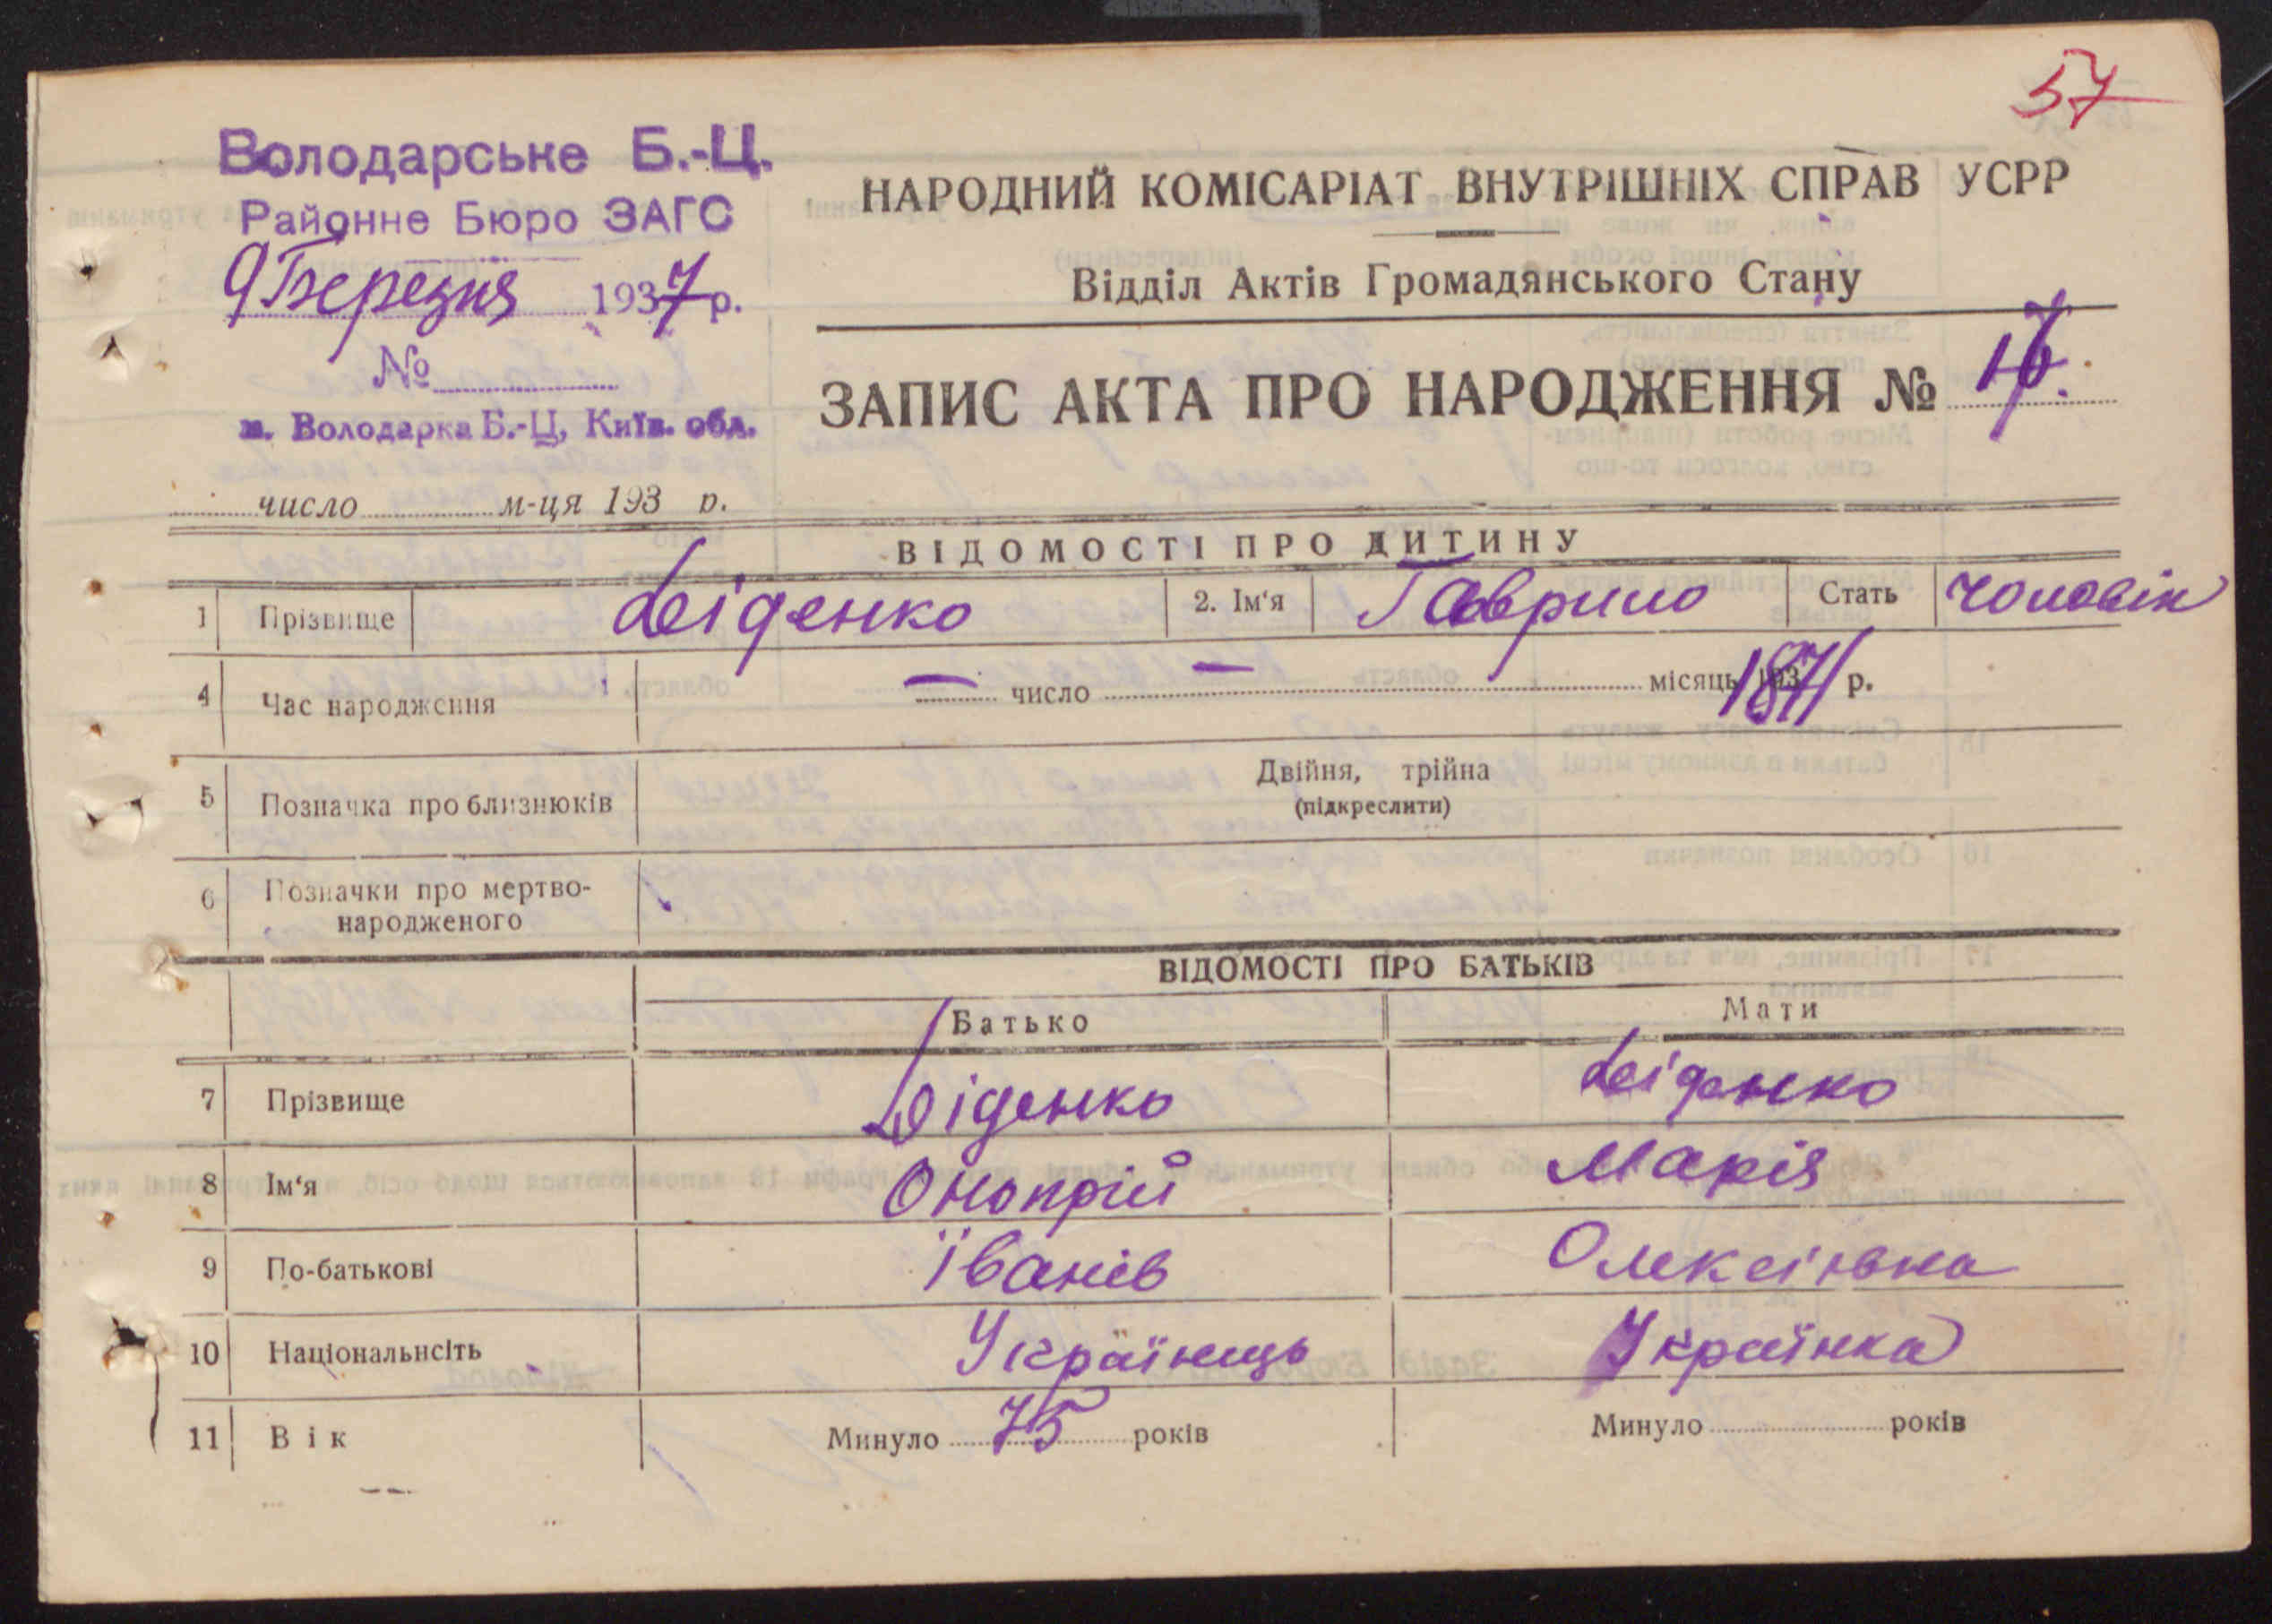 57
Володарське Б.-Ц.
Районне Бюро ЗАГС
9 Березня 1937 р.
№
м. Володарка Б.-Ц, Київ. обл.
число м-ця 193 р.
НАРОДНИЙ КОМІСАРІАТ ВНУТРІШНІХ СПРАВ УСРР
Відділ Актів Громадянського Стану
ЗАПИС АКТА ПРО НАРОДЖЕННЯ №
ВІДОМОСТІ ПРО ДИТИНУ
1 Прізвище Діденко 2. Ім‘я Гаврило Стать чоловік
4 Час народження — число — місяць 1871 р.
5 Позначка про близнюків Двійня, трійна
(підкреслити)
6 Позначки про мертво-
народженого
ВІДОМОСТІ ПРО БАТЬКІВ
Батько Мати
7 Прізвище Діденко Діденко
8 Ім‘я Онопрій Марія
9 По-батькові Іванів Олексіївна
10 Національнсіть Українець Українка
11 Вік Минуло 75 років Минуло років